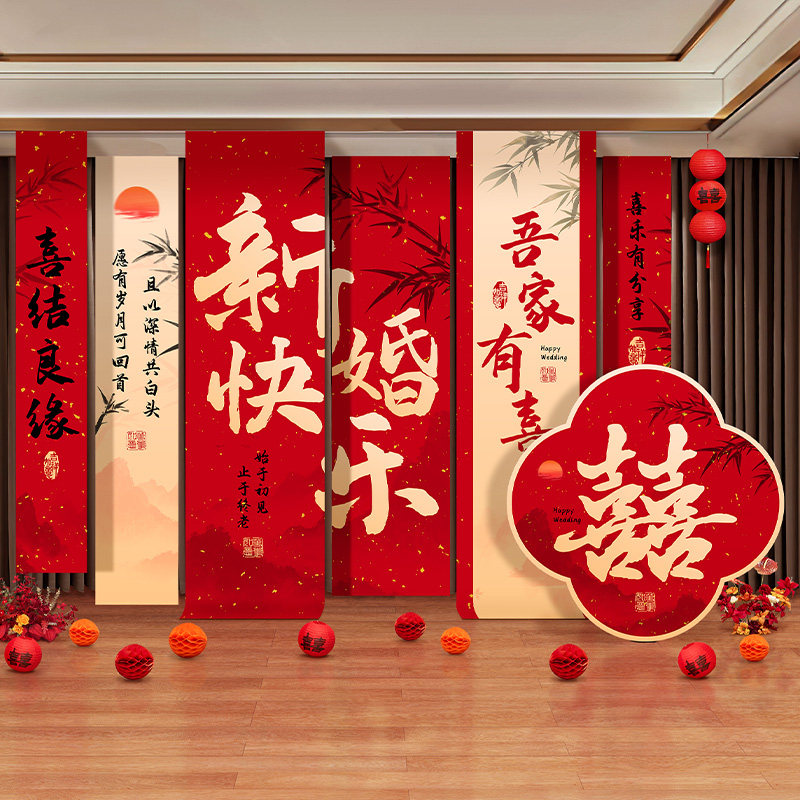 喜结良缘
且以深情共白头
愿有岁月可回首
新婚
快乐
始于初见
止于终老
吾家有喜
Happy
Wedding
喜乐有分享
囍
囍
Happy
Wedding
囍
囍